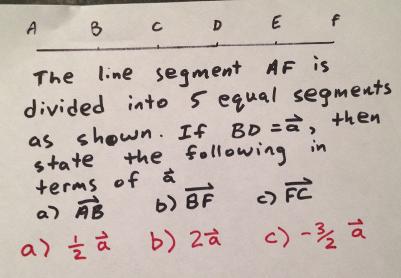 A B C D E F
The line segment AF is
divided into 5 equal segments
as shown. If BD = a⃗, then
state the following in
terms of a⃗
a) A⃗B⃗ b) B⃗F⃗ c) F⃗C⃗
a) ½ a⃗ b) 2a⃗ c) -3/2 a⃗